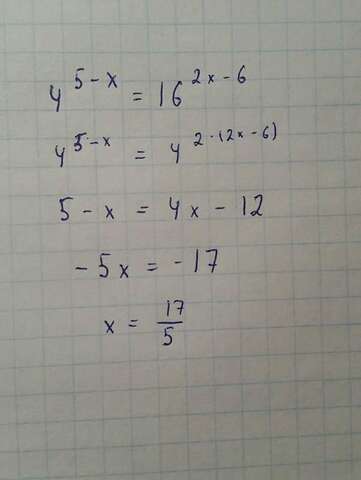 4^{5-x} = 16^{2x-6}
4^{5-x} = 4^{2·(2x-6)}
5 - x = 4x - 12
-5x = -17
x = \frac{17}{5}